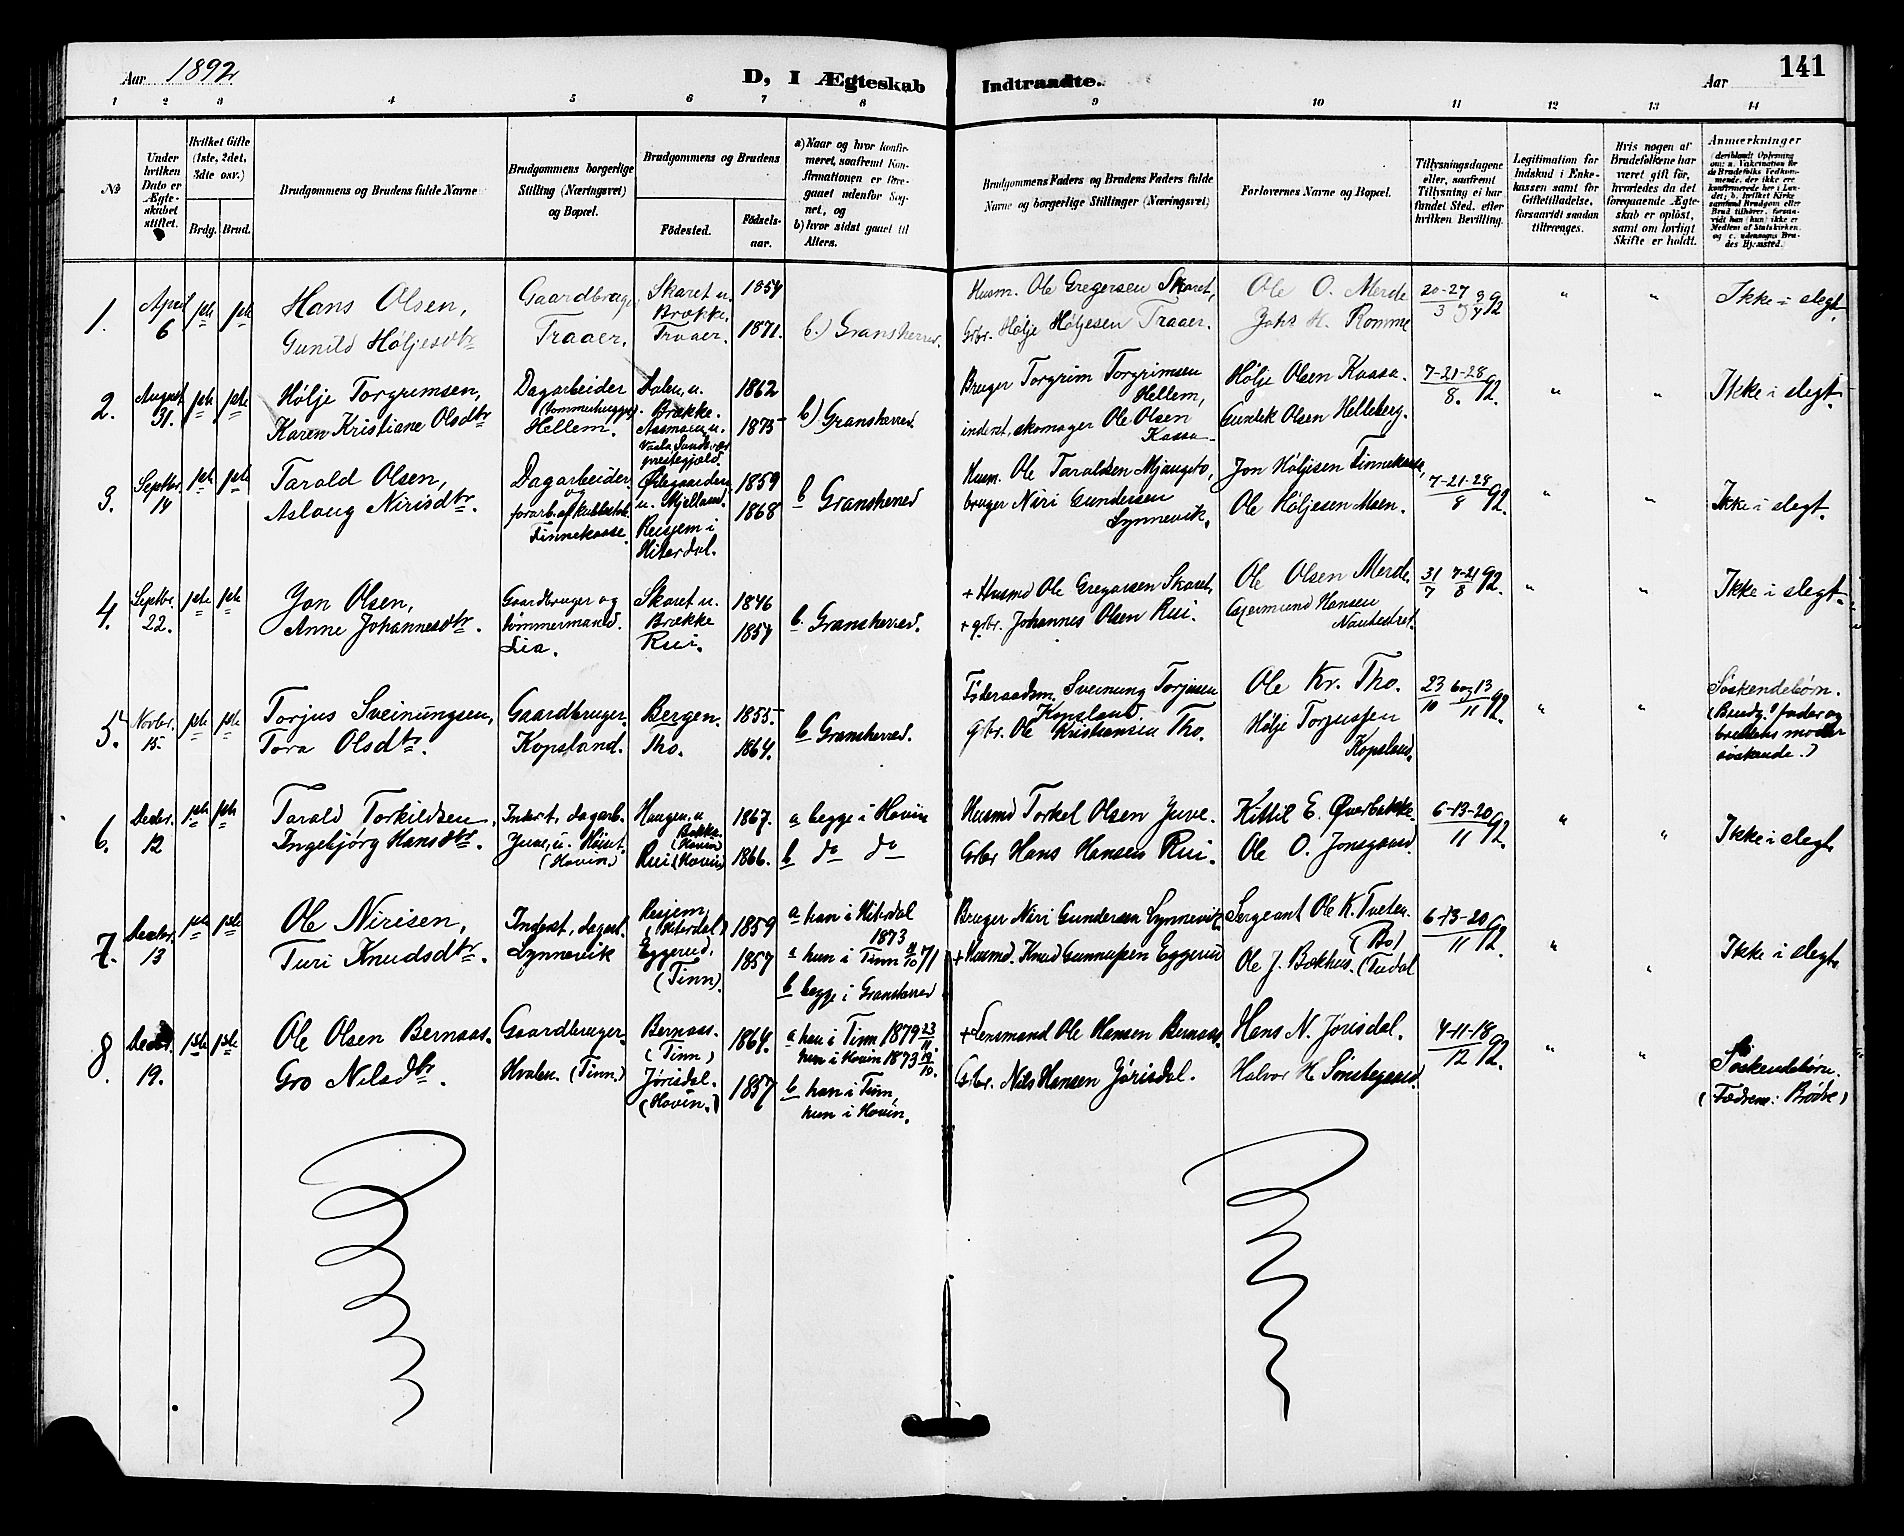 Aar 1892
D, I Ægteskab Indtraadte.
Aar
141
1 2 3 4 5 6 7 8 9 10 11 12 13 14
No
Under hvilken Dato er Ægteskabet stiftet.
Hvilket Gifte (1ste, 2det, 3dte osv.)
Brdg. Brud.
Brudgommens og Brudens fulde Navne
Brudgommens borgerlige Stilling (Næringsvei) og Bopæl.
Brudgommens og Brudens
Fødested. Fødselsaar.
a) Naar og hvor konfirmeret, saafremt Konfirmationen er foregaaet udenfor Sognet, og
b) hvor sidst gaaet til Alters.
Brudgommens Faders og Brudens Faders fulde Navne og borgerlige Stillinger (Næringsvei)
Forlovernes Navne og Bopæl.
Tillysningsdagene eller, saafremt Tillysning ei har fundet Sted, efter hvilken Bevilling.
Legitimation for Indskud i Enkekassen samt for Giftetilladelse, forsaavidt saadan tiltrænges.
Hvis nogen af Brudefolkene har været gift før, hvorledes da det foregaaende Ægteskab er opløst, samt om lovligt Skifte er holdt.
Anmærkninger
1. April 6 1ste 1ste
Hans Olsen,
Gunild Høljesdtr
Gaardbruger,
Traaer.
Skaret u. Brække.
Traaer.
1854
1871.
b.) Gransherred.
Husm. Ole Gregersen Skaret,
Grbr. Hølje Høljesen Traaer.
Ole O. Merde
Johs H. Romme
20-27/3 3/4 92
" "
Ikke i slegt.
2. August 31. 1ste 1ste
Hølje Torgrimsen,
Karen Kristiane Olsdtr
Dagarbeider
(tømmerhugger).
Hellem.
Dalen, u.
Brække.
præstegjæld.
1862
1873
b) Gransherred.
Bruger Torgrim Torgrimsen
Hellem,
inderst, skomager Ole Olsen
Kaasa
Hølje Olsen Kaasa.
Gunlek Olsen Helleberg.
7-21-28/8. 92.
" "
Ikke i slegt.
3. Septbr. 14 1ste 1ste
Tarald Olsen,
Aslaug Nirisdtr.
Dagarbeider
og
Finnekaase.
Ødegaarden
u. Mjelland.
Reisjem i
Hiterdal.
1859
1868
b Gransherred
Husm. Ole Taraldsen
bruger Niri Gundersen
Lynnevik.
Jon Høljesen Finnekaase,
Ole Høljesen Moen.
7-21-28/8 92.
" "
Ikke i slegt.
4. Septbr. 22. 1ste 1ste
Jon Olsen,
Anne Johannesdtr.
Gaardbruger og
tømmermand.
Lia.
Skaret u.
Brække
Rui.
1846
1854
b. Gransherred.
+ Husmd Ole Gregarsen Skaret,
+ grbr. Johannes Olsen Rui.
Ole Olsen Merde,
Gjermund Hansen
31/7 7-21/8 92.
" "
Ikke i slegt.
5. Novbr. 15. 1ste 1ste
Torjus Sveinungsen,
Tora Olsdtr.
Gaardbruger.
Kopsland.
Bergen.
Tho.
1855.
1864.
b Gransherred.
Føderaadsm. Sveinung Torjusen
Kopsland
grbr. Ole Kristiansen Tho.
Ole Kr. Tho.
Hølje Torjussen
Kopsland.
23/10 6 og 13/11 92.
" "
Søskendebørn.
(Brudg.s fader og
brudens moder
søskende.)
6. Decbr. 12 1ste 1ste
Tarald Torkildsen,
Ingebjørg Hansdtr.
Inderst, dagarb.
(Hovin)
Haugen, u
(Hovin)
Rui (Hovin)
1867.
1866.
a begge i Hovin
b do do
Husmd Torkel Olsen Juve.
Grbr Hans Hansen Rui.
Kittil E. Øverbekke
Ole O. Jonsgaard.
6-13-20/11 92.
" "
Ikke i slegt
7. Decbr. 13 1ste 1ste
Ole Nirisen,
Turi Knudsdtr.
Inderst, dagarb.
Lynnevik
Reisjem,
(Hiterdal)
Eggerud,
(Tinn).
1859
1857
a han i Hiterdal
1873
a hun i Tinn 71
b begge i Gransherred
Bruger Niri Gundersen Lynnevik
+ Husmd. Knud Gunnufsen Eggerud
Sergeant Ole K. Tveten.
(Bø)
Ole J. Bakhus. (Tudal
6-13-20/11 92.
" "
Ikke i slegt.
8. Decbr. 19. 1ste 1ste
Ole Olsen Bernaas.
Gro Nilsdtr.
Gaardbruger.
Hvalen. (Tinn.)
Bernaas.
(Tinn)
Jørisdal.
(Hovin.)
1864.
1857
a han i Tinn 1879 23/11.
hun i Hovin 1873
b han i Tinn,
hun i Hovin.
+ Lensmand Ole Hansen Bernaas.
Grbr. Nils Hansen Jørisdal.
Hans N. Jørisdal.
Halvor H Sønstegaard.
4-11-18/12 92.
" "
Søskendebørn.
(Fædrene: Brødre)